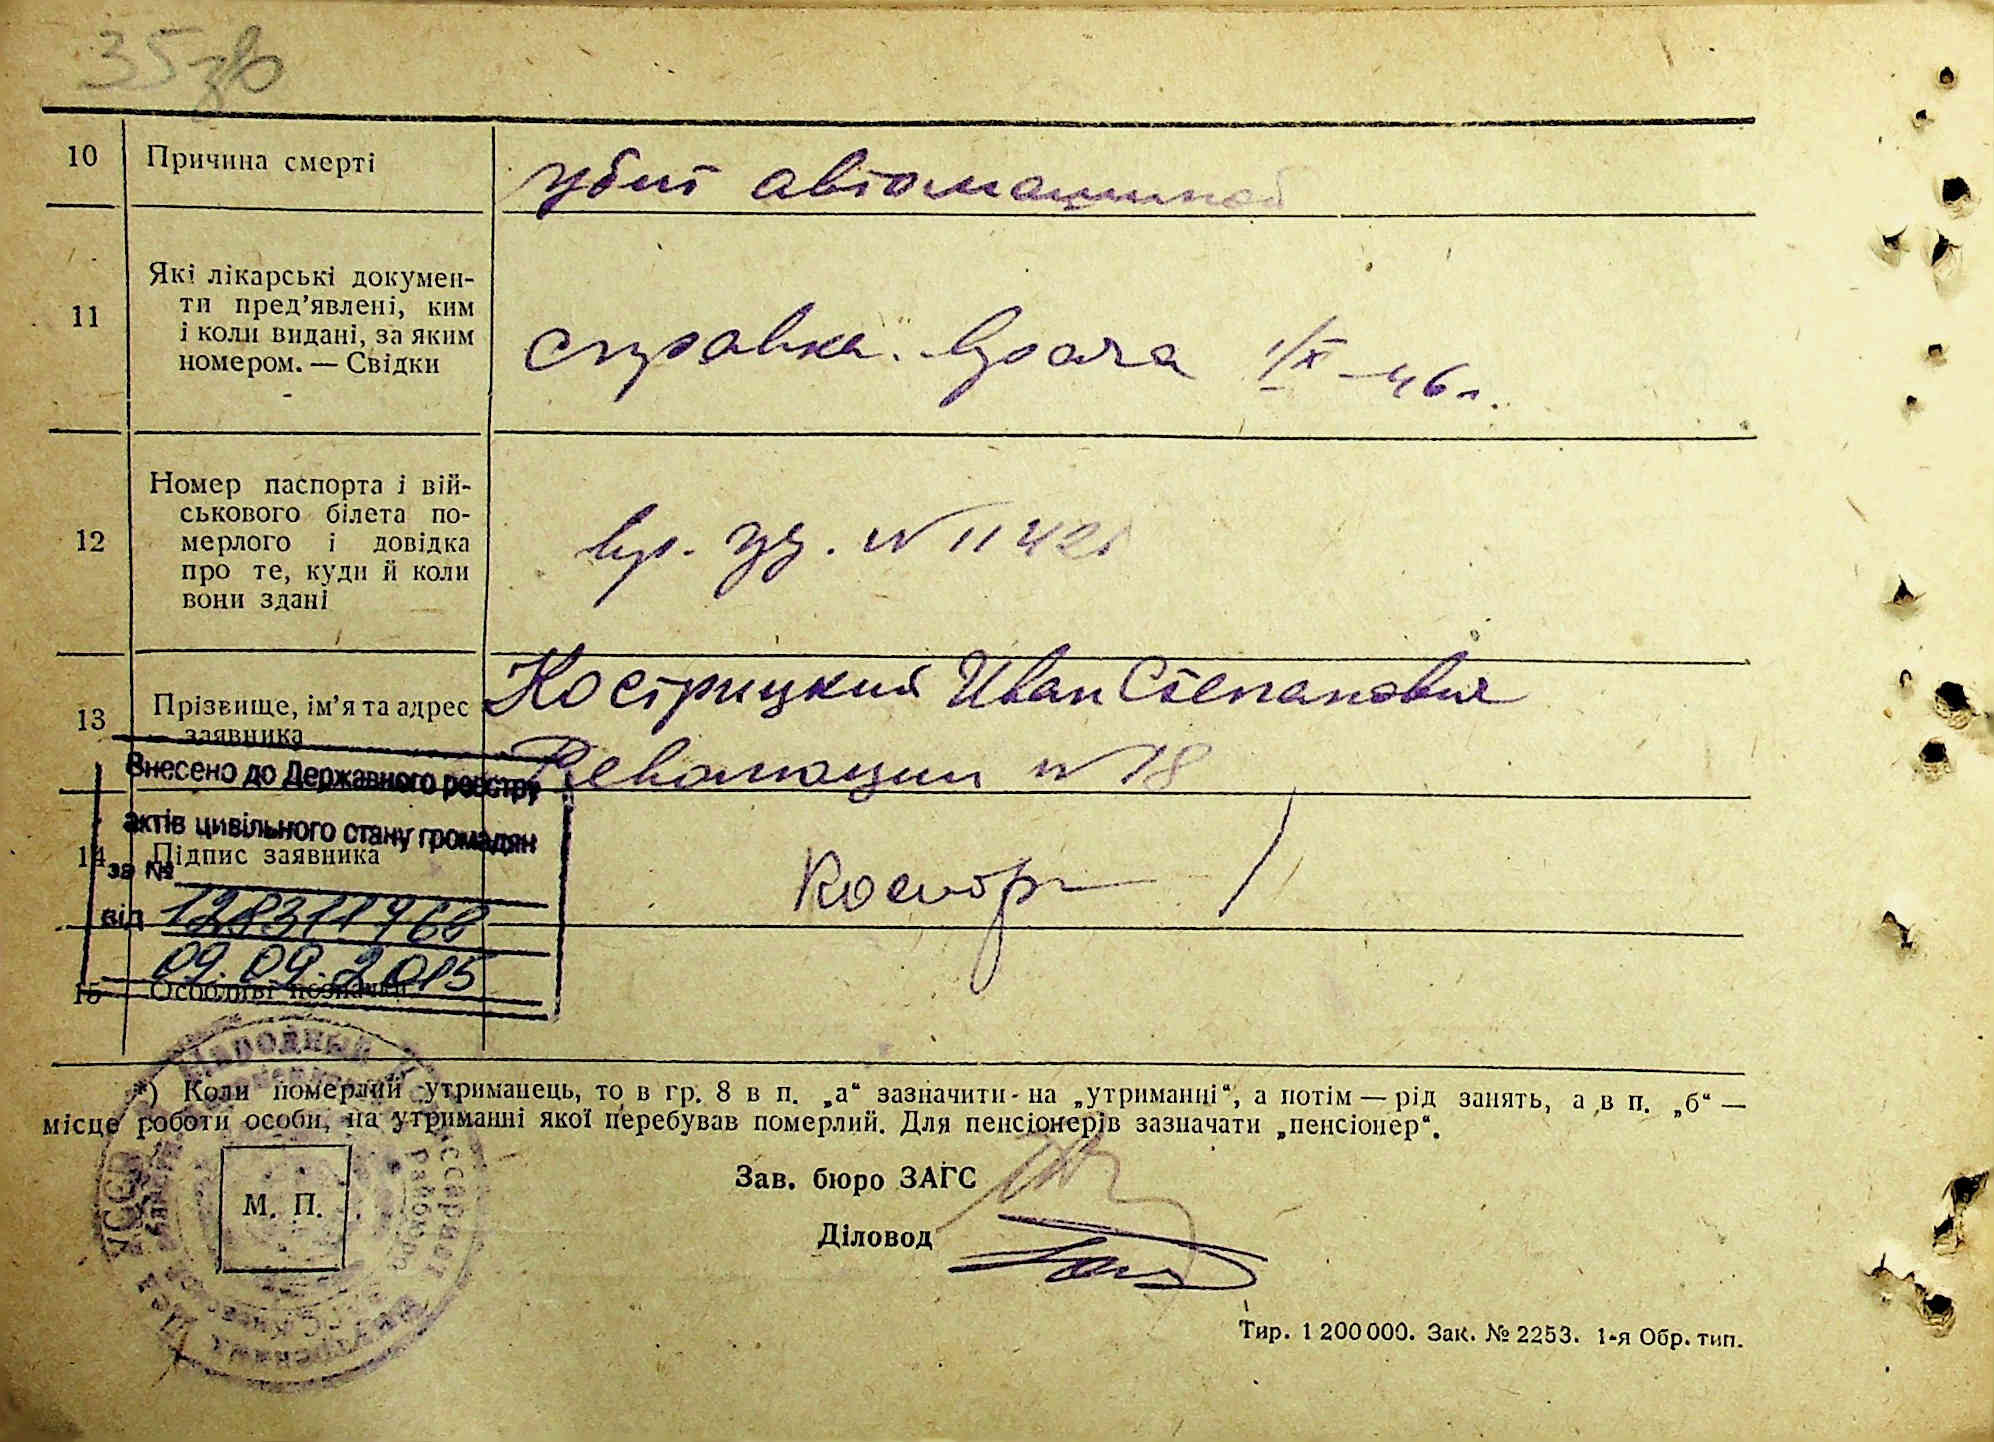 35зв
10 Причина смерті убит автомашиной
11 Які лікарські докумен-
ти пред’явлені, ким
і коли видані, за яким
номером. — Свідки
справка врача 1/X-46г.
12 Номер паспорта і вій-
ськового білета по-
мерлого і довідка
про те, куди й коли
вони здані
вр. уд. N 11421
13 Прізвище, ім’я та адрес
заявника
Кострицкий Иван Степанович
Революции N 18
Внесено до Державного реєстру
актів цивільного стану громадян
14 Підпис заявника
за №
від 128311768
09.09.2015
15 Особливі позначки
*) Коли померлий утриманець, то в гр. 8 в п. „а“ зазначити - на „утриманні“, а потім — рід занять, а в п. „б“ —
місце роботи особи, на утриманні якої перебував померлий. Для пенсіонерів зазначати „пенсіонер“.
Народный
УССР
М. П.
Зав. бюро ЗАГС
Діловод
Тир. 1 200 000. Зак. № 2253. 1-я Обр. тип.